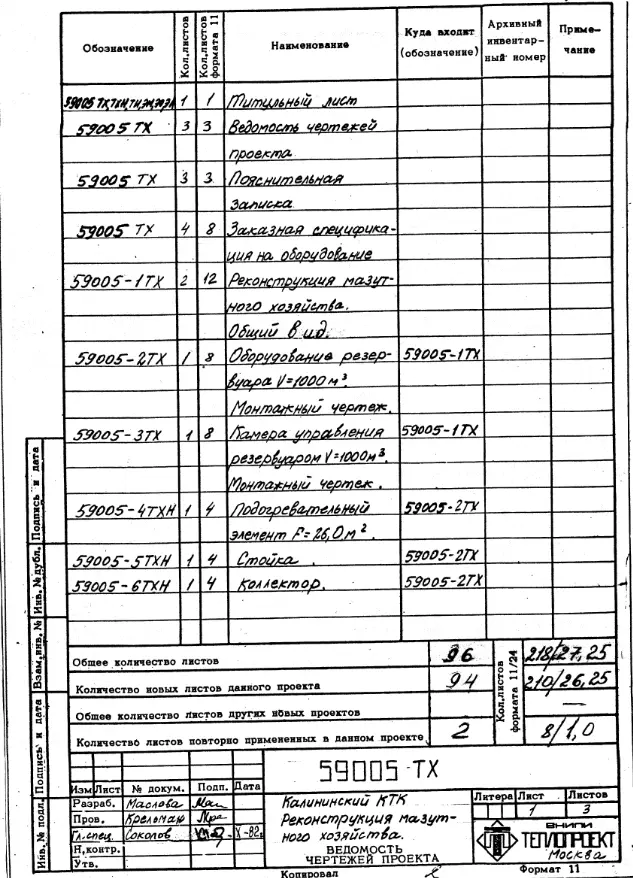 Обозначение Кол.листов Кол.листов формата 11 Наименование Куда входит (обозначение) Архивный инвентарный номер Примечание
1 1 Титульный лист
59005 ТХ 3 3 Ведомость чертежей
проекта
59005 ТХ 3 3 Пояснительная
записка
59005 ТХ 4 8 Заказная специфика-
ция на оборудование
59005-1ТХ 2 12 Реконструкция мазут-
ного хозяйства.
Общий вид.
59005-2ТХ 1 8 Оборудование резер- 59005-1ТХ
вуара V=1000м³
Монтажный чертеж.
59005-3ТХ 1 8 Камера управления 59005-1ТХ
резервуаром V=1000м³.
Монтажный чертеж.
59005-4ТХН 1 4 Подогревательный 59005-2ТХ
элемент F=26,0м².
59005-5ТХН 1 4 Стойка. 59005-2ТХ
59005-6ТХН 1 4 Коллектор. 59005-2ТХ
Общее количество листов 96 218/27,25
Количество новых листов данного проекта 94 210/26,25
Общее количество листов других новых проектов —
Количество листов повторно примененных в данном проекте 2 8/1,0
Кол.листов формата 11/24
59005-ТХ
Изм Лист № докум. Подп. Дата
Разраб. Маслова
Пров. Крельман
Гл.спец. Соколов X-82.
Н.контр.
Утв.
Калининский КТК
Реконструкция мазут-
ного хозяйства.
ВЕДОМОСТЬ
ЧЕРТЕЖЕЙ ПРОЕКТА
Литера Лист Листов
1 3
ВНИПИ
ТЕПЛОПРОЕКТ
Москва
Копировал Формат 11
Инв.№ подл. Подпись и дата Взам.инв.№ Инв.№дубл. Подпись и дата